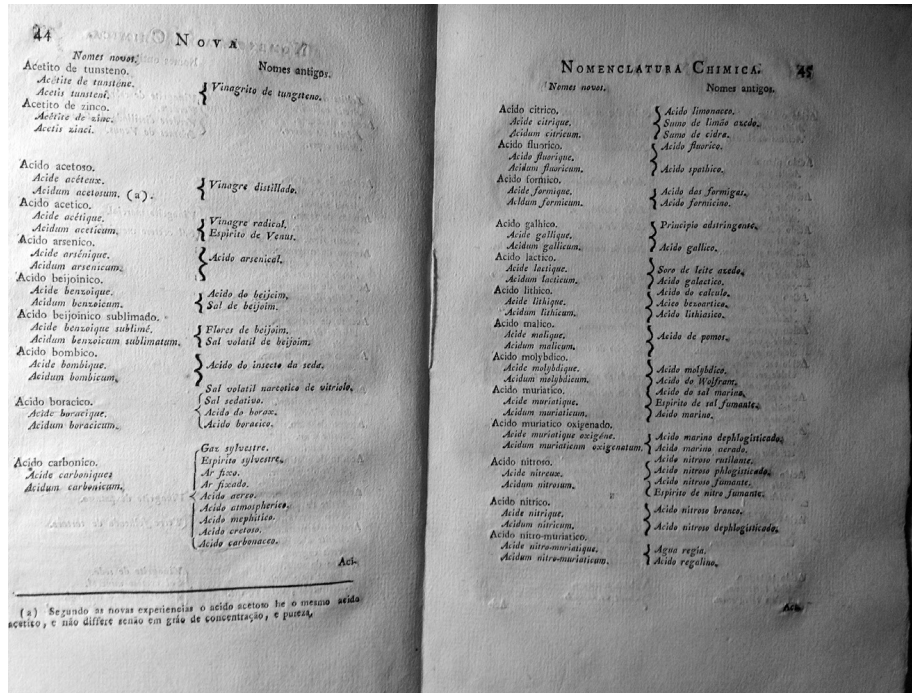 44
NOVA
Nomes novos.
Nomes antigos.
Acetito de tunsteno.
Acétite de tunsténe.
Acetis tunsteni.
Vinagrito de tungsteno.
Acetito de zinco.
Acétite de zinc.
Acetis zinci.
Acido acetoso.
Acide acéteux.
Acidum acetosum. (a).
Vinagre distillado.
Acido acetico.
Acide acétique.
Acidum aceticum.
Vinagre radical.
Espirito de Venus.
Acido arsenico.
Acide arsénique.
Acidum arsenicum.
Acido arsenical.
Acido beijoinico.
Acide benzoique.
Acidum benzoicum.
Acido do beijoim.
Sal de beijoim.
Acido beijoinico sublimado.
Acide benzoique sublimé.
Acidum benzoicum sublimatum.
Flores de beijoim.
Sal volatil de beijoim.
Acido bombico.
Acide bombique.
Acidum bombicum.
Acido do insecto da seda.
Acido boracico.
Acide boracique.
Acidum boracicum.
Sal volatil narcotico de vitriolo.
Sal sedativo.
Acido do borax.
Acido boracico.
Acido carbonico.
Acide carbonique.
Acidum carbonicum.
Gaz sylvestre.
Espirito sylvestre.
Ar fixo.
Ar fixado.
Acido aereo.
Acido atmospherico.
Acido mephitico.
Acido cretoso.
Acido carbonaceo.
Aci-
(a) Segundo as novas experiencias o acido acetoso he o mesmo acido
acetico, e não differe senão em gráo de concentração, e pureza.
NOMENCLATURA CHIMICA.
45
Nomes novos.
Nomes antigos.
Acido citrico.
Acide citrique.
Acidum citricum.
Acido limonaceo.
Sumo de limão azedo.
Sumo de cidra.
Acido fluorico.
Acide fluorique.
Acidum fluoricum.
Acido fluorico.
Acido spathico.
Acido formico.
Acide formique.
Acidum formicum.
Acido das formigas.
Acido formicino.
Acido galhico.
Acide gallique.
Acidum gallicum.
Principio adstringente.
Acido gallico.
Acido lactico.
Acide lactique.
Acidum lacticum.
Soro de leite azedo.
Acido galactico.
Acido lithico.
Acide lithique.
Acidum lithicum.
Acido do calculo.
Acico bezoartico.
Acido lithiasico.
Acido malico.
Acide malique.
Acidum malicum.
Acido de pomos.
Acido molybdico.
Acide molybdique.
Acidum molybdicum.
Acido molybdico.
Acido do Wolfram.
Acido muriatico.
Acide muriatique.
Acidum muriaticum.
Acido do sal marino.
Espirito de sal fumante.
Acido marino.
Acido muriatico oxigenado.
Acide muriatique oxigéne.
Acidum muriaticum oxigenatum.
Acido marino dephlogisticado.
Acido marino aerado.
Acido nitroso.
Acide nitreux.
Acidum nitrosum.
Acido nitroso rutilante.
Acido nitroso phlogisticado.
Acido nitroso fumante.
Espirito de nitro fumante.
Acido nitrico.
Acide nitrique.
Acidum nitricum.
Acido nitroso branco.
Acido nitroso dephlogisticado.
Acido nitro-muriatico.
Acide nitro-muriatique.
Acidum nitro-muriaticum.
Agua regia.
Acido regalino.
Aci-